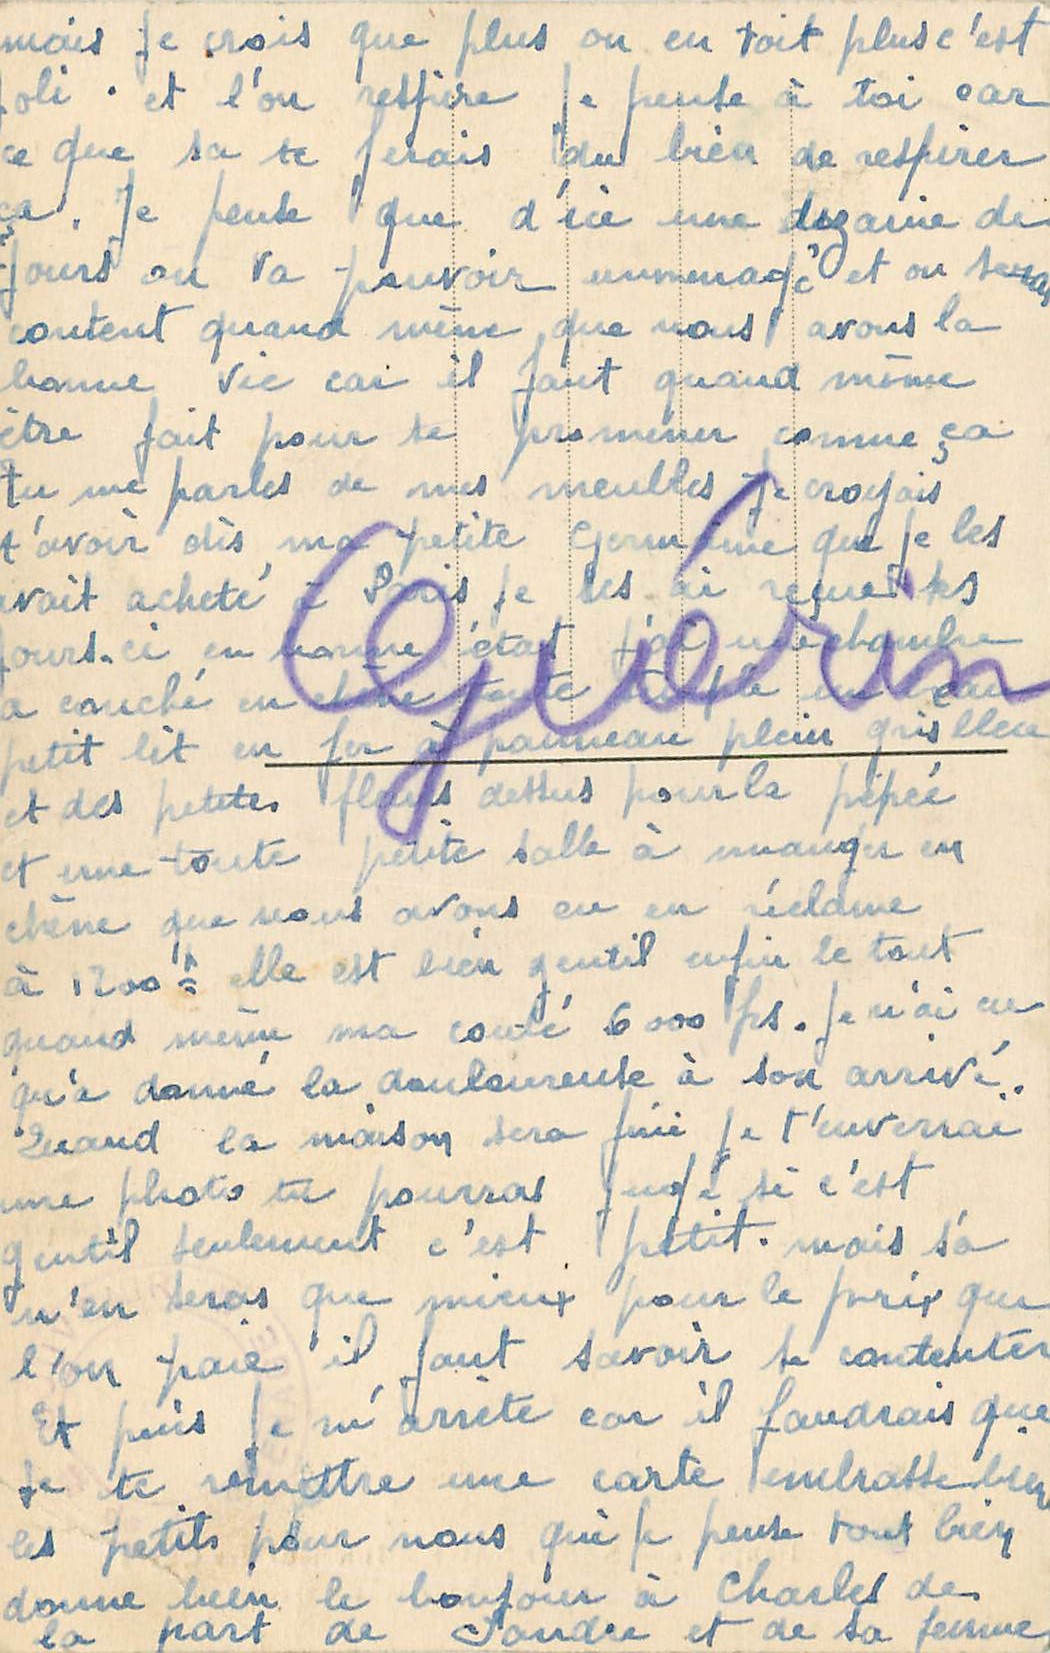 mais je crois que plus on en voit plus c'est
joli. et l'on respire je pense à toi car
ce que sa te ferais du bien de respirer
ça. Je pense que d'ici une dizaine de
jours on va pouvoir emmenagé et on
content quand même que nous avons la
bonne vie car il faut quand même
être fait pour se promener comme ça
tu me parles de mes meubles je croyais
t'avoir dis ma petite Germaine que je les
avait acheté à Paris je les ai reçue ses
jours-ci en bonne état j'ai une chambre
a couché en chêne toute simple un beau
petit lit en fer à panneau plein gris bleu
et des petites fleurs dessus pour la pépée
et une toute petite salle à manger en
chêne que nous avons eu en réclame
à 1200 elle est bien gentil enfin le tout
quand même ma couté 6000 frs. Je n'ai eu
qu'a donné la douloureuse à son arrivé.
Quand la maison sera finie je t'enverrai
une photo tu pourras jugé si c'est
gentil seulement c'est petit. mais sa
n'en seras que mieux pour le prix que
l'on paie il faut savoir se contenter
Et puis je m'arrête car il faudrais que
je te remettre une carte embrasse bien
les petits pour nous qui je pense vont bien
donne bien le bonjour à Charles de
la part de et de sa femme
Guérin